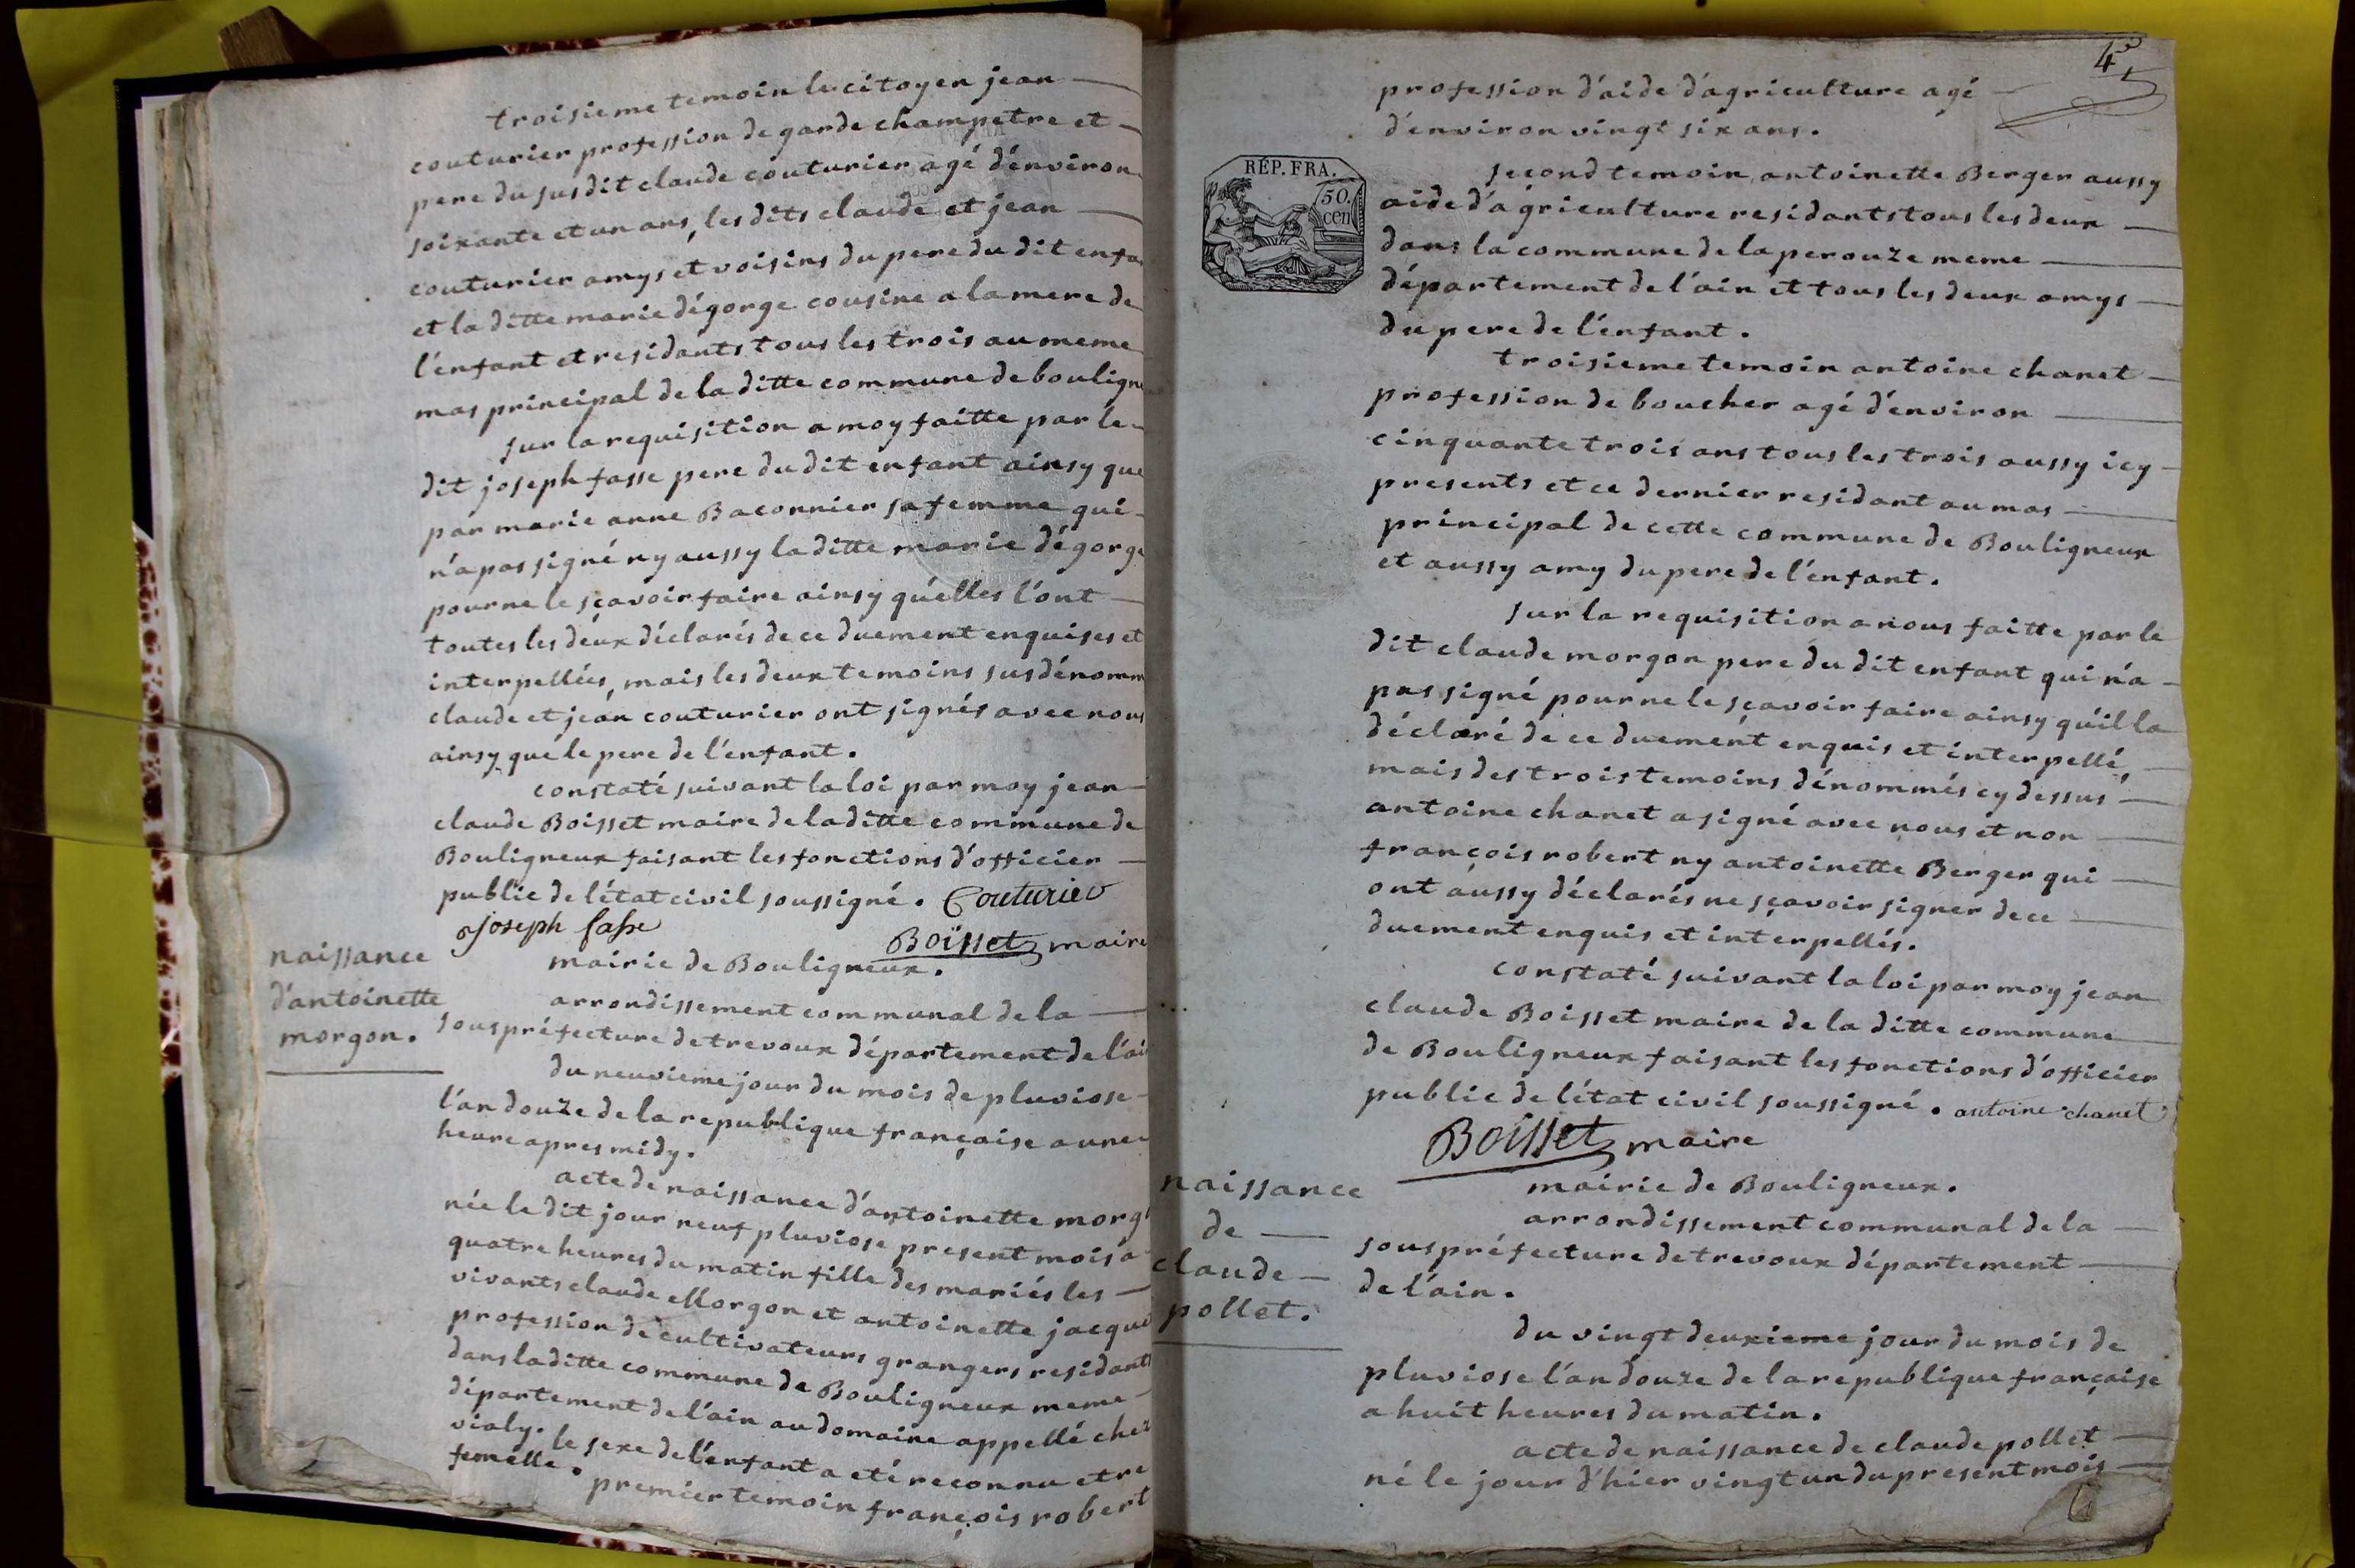 troisieme temoin le citoyen jean
couturier profession de garde champetre et
pere du susdit claude couturier agé d'environ
soixante et un ans, les dits claude et jean
couturier amys et voisins du pere du dit enfa
et la ditte marie dégorge cousine a la mere de
l'enfant et residants tous les trois au meme
mas principal de la ditte commune de bouligne
sur la requisition a moy faitte par le
dit joseph fasse pere du dit enfant ainsy que
par marie anne Baconnier sa femme qui
n'a pas signé ny aussy la ditte marie dégorge
pour ne le sçavoir faire ainsy qu'elles l'ont
toutes les deux déclarés de ce duement enquises et
interpellées, mais les deux temoins susdénomm
claude et jean couturier ont signés avec nous
ainsy que le pere de l'enfant.
constaté suivant la loi par moy jean
claude Boisset maire de la ditte commune de
Bouligneux faisant les fonctions d'officier
public de l'état civil soussigné. Couturier
joseph fasse
Boisset maire
naissance
d'antoinette
morgon.
mairie de Bouligneux.
arrondissement communal de la
souspréfecture de trevoux département de l'ai
du neuvieme jour du mois de pluviose
l'an douze de la republique française a une
heure apres midy.
acte de naissance d'antoinette morg
née le dit jour neuf pluviose present mois a
quatre heures du matin fille des mariés les
vivants claude Morgon et antoinette jacque
profession de cultivateurs grangers residants
dans la ditte commune de Bouligneux meme
département de l'ain au domaine appellé chez
vialy. le sexe de l'enfant a eté reconnu etre
femelle.
premier temoin françois robert
4
RÉP. FRA.
50.
cen
profession d'aide d'agriculture agé
d'environ vingt six ans.
second temoin antoinette Berger aussy
aide d'agriculture residants tous les deux
dans la commune de laperouze meme
département de l'ain et tous les deux amys
du pere de l'enfant.
troisieme temoin antoine chanet
profession de boucher agé d'environ
cinquante trois ans tous les trois aussy icy
presents et ce dernier residant au mas
principal de cette commune de Bouligneux
et aussy amy du pere de l'enfant.
sur la requisition a nous faitte par le
dit claude morgon pere du dit enfant qui n'a
pas signé pour ne le sçavoir faire ainsy qu'il la
déclaré de ce duement enquis et interpellé,
mais des trois temoins dénommés cy dessus
antoine chanet a signé avec nous et non
françois robert ny antoinette Berger qui
ont aussy déclarés ne sçavoir signer de ce
duement enquis et interpellés.
constaté suivant la loi par moy jean
claude Boisset maire de la ditte commune
de Bouligneux faisant les fonctions d'officier
public de l'état civil soussigné. antoine chanet
Boisset maire
naissance
de
claude
pollet.
mairie de Bouligneux.
arrondissement communal de la
souspréfecture de trevoux département
de l'ain.
du vingt deuxieme jour du mois de
pluviose l'an douze de la republique française
a huit heures du matin.
acte de naissance de claude pollet
né le jour d'hier vingt un du present mois